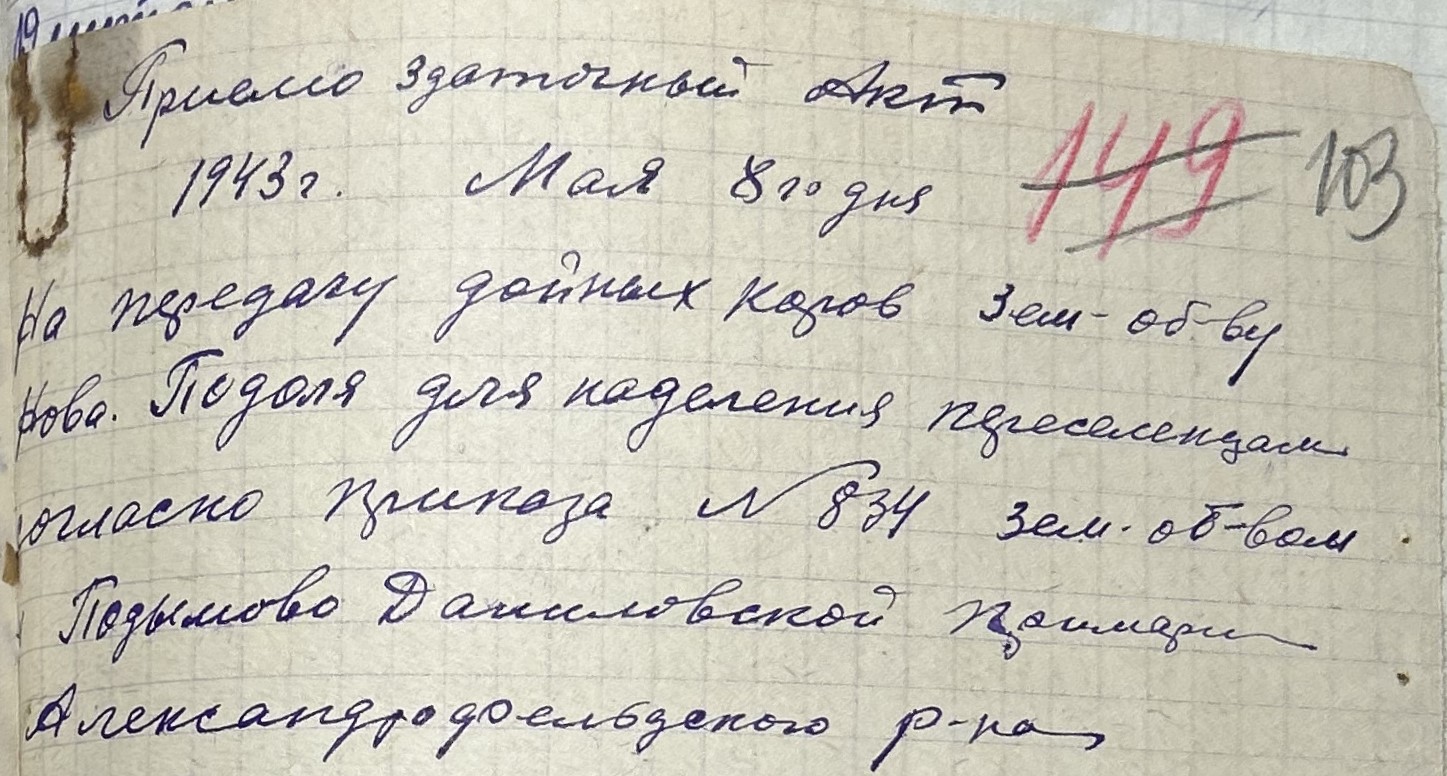 Приемо здаточный Акт
1943 г. Мая 8го дня
149 103
На передачу дойных коров Зем-об-ву
Нова. Подоля для наделения переселенцам
согласно приказа N 834 Зем-об-вом
Подымово Даниловской примари
Александродфельдского р-на